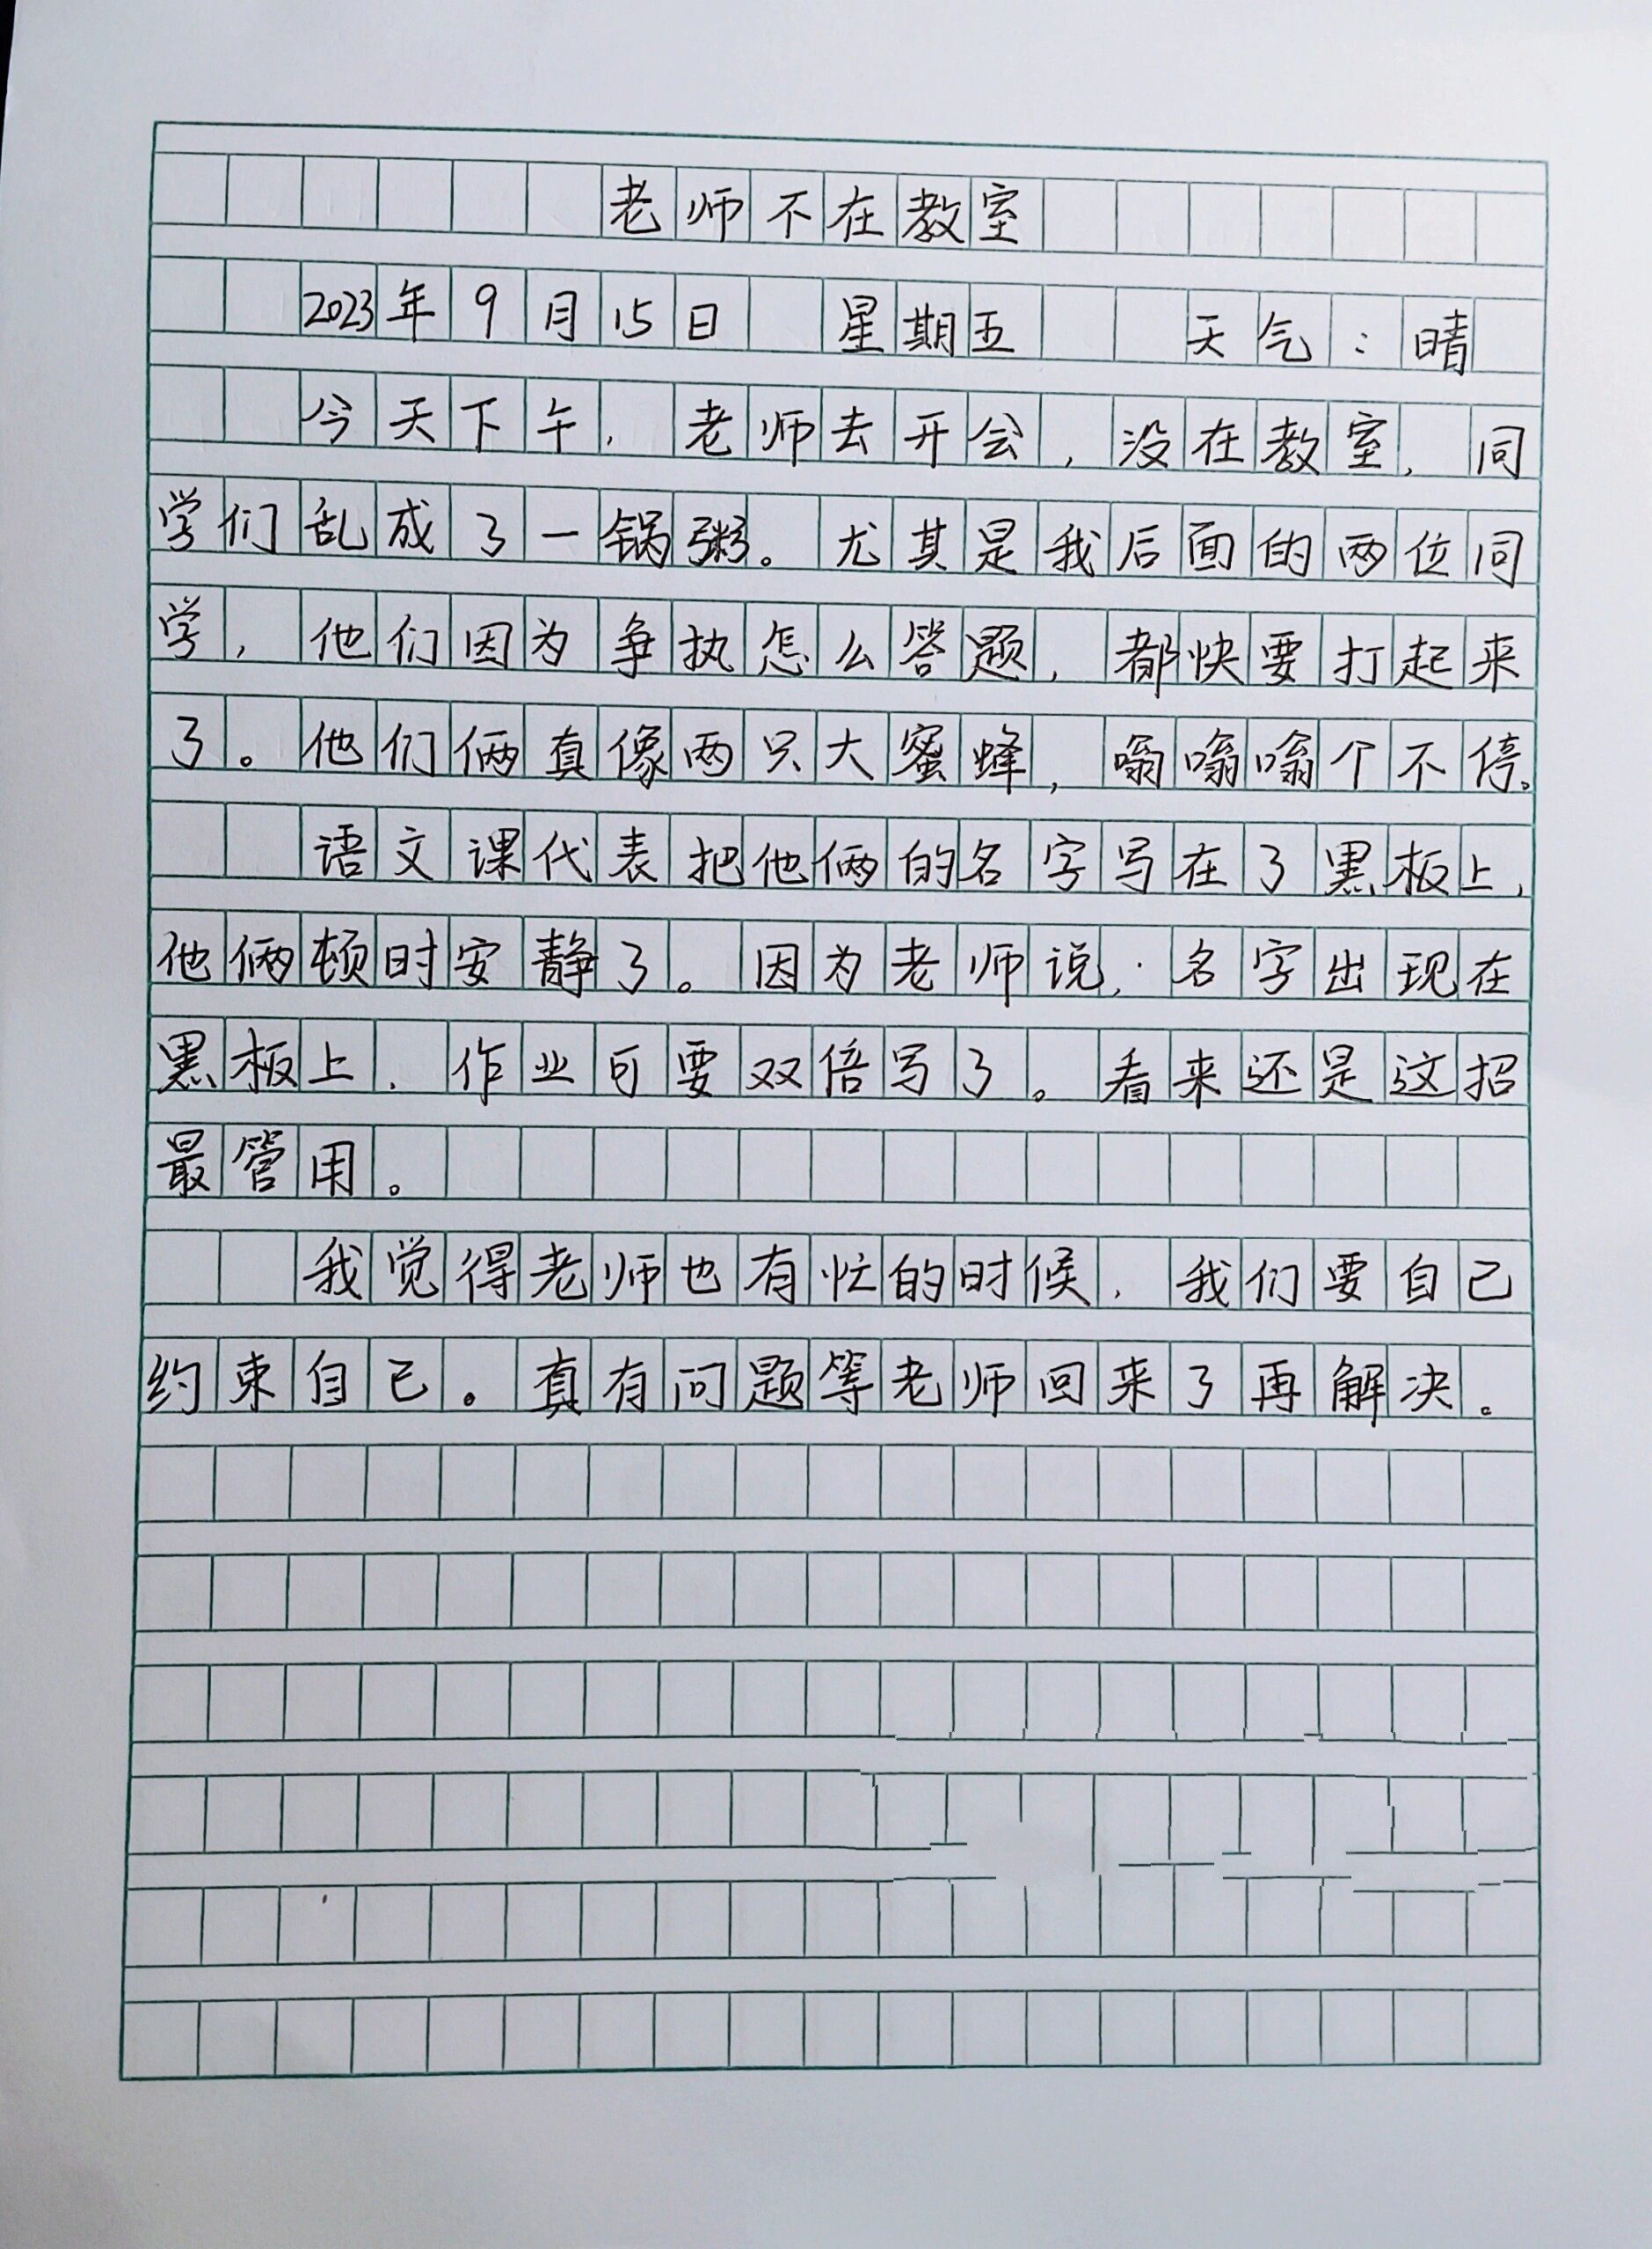 老师不在教室
2023年9月15日 星期五 天气:晴
今天下午,老师去开会,没在教室,同
学们乱成了一锅粥。尤其是我后面的两位同
学,他们因为争执怎么答题,都快要打起来
了。他们俩真像两只大蜜蜂,嗡嗡嗡个不停。
语文课代表把他俩的名字写在了黑板上,
他俩顿时安静了。因为老师说,名字出现在
黑板上,作业可要双倍写了。看来还是这招
最管用。
我觉得老师也有忙的时候,我们要自己
约束自己。真有问题等老师回来了再解决。